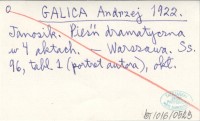 GALICA Andrzej 1922.
Janosik. Pieśń dramatyczna
w 4 aktach. - Warszawa. Ss.
96, tabl. 1 (portret autora), okł.